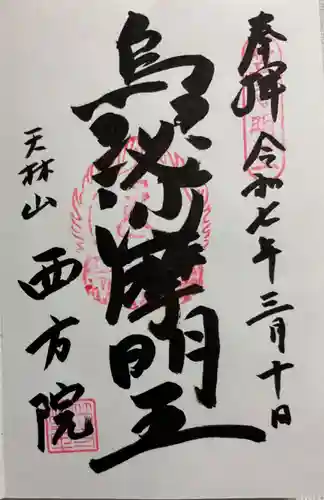 奉拝 令和七年三月十日
烏瑟沙摩明王
天林山
西方院